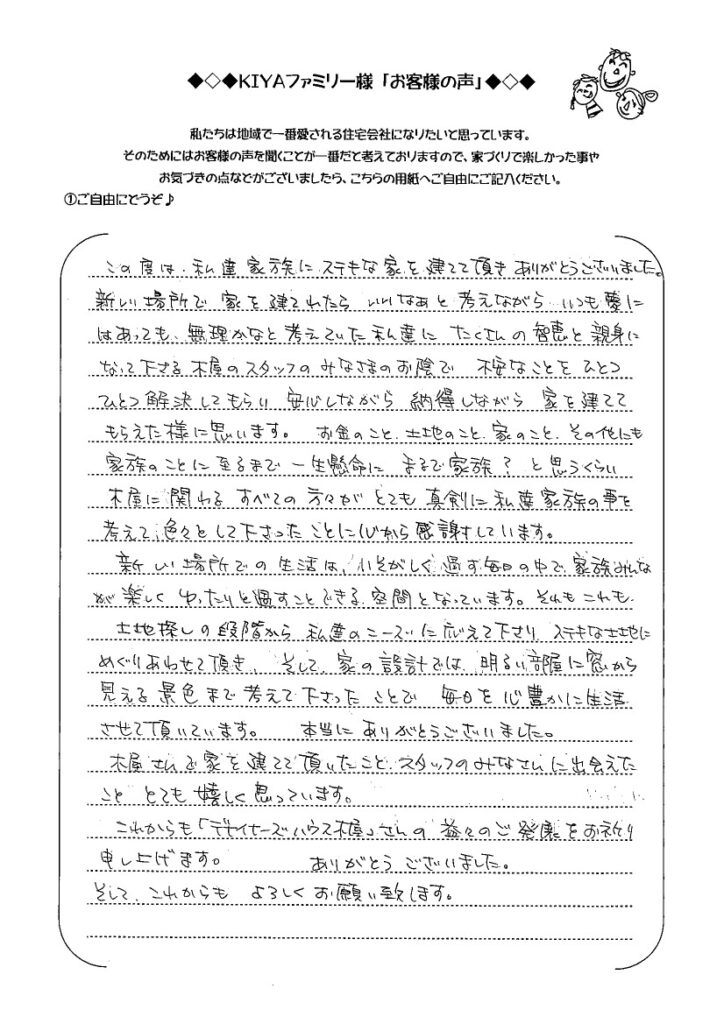 ◆◇◆KIYAファミリー様「お客様の声」◆◇◆
私たちは地域で一番愛される住宅会社になりたいと思っています。
そのためにはお客様の声を聞くことが一番だと考えておりますので、家づくりで楽しかった事や
お気づきの点などがございましたら、こちらの用紙へご自由にご記入ください。
①ご自由にどうぞ♪
この度は、私達家族にステキな家を建てて頂きありがとうございました。
新しい場所で家を建てれたらいいなぁと考えながらいつも夢に
はあっても、無理かなと考えていた私達にたくさんの智恵と親身に
なって下さる木屋のスタッフのみなさまのお陰で 不安なことをひとつ
ひとつ解決してもらい安心しながら納得しながら家を建てて
もらえた様に思います。お金のこと、土地のこと、家のこと、その他にも
家族のことに至るまで一生懸命にまるで家族?と思うくらい
木屋に関わるすべての方々がとても真剣に私達家族の事を
考えて、色々として下さったことに心から感謝しています。
新しい場所での生活は、いそがしく過す毎日の中で、家族みんな
が楽しくゆったりと過すことできる空間となっています。それもこれも、
土地探しの段階から私達のニーズに応えて下さり ステキな土地に
めぐりあわせて頂き、そして家の設計では、明るい部屋に窓から
見える景色まで考えて下さったことで 毎日を心豊かに生活
させて頂いています。 本当にありがとうございました。
木屋さんで家を建てて頂いたこと、スタッフのみなさんに出会えた
こととても嬉しく思っています。
これからも「デザイナーズハウス木屋」さんの益々のご発展をお祈り
申し上げます。 ありがとうございました。
そして、これからもよろしくお願い致します。